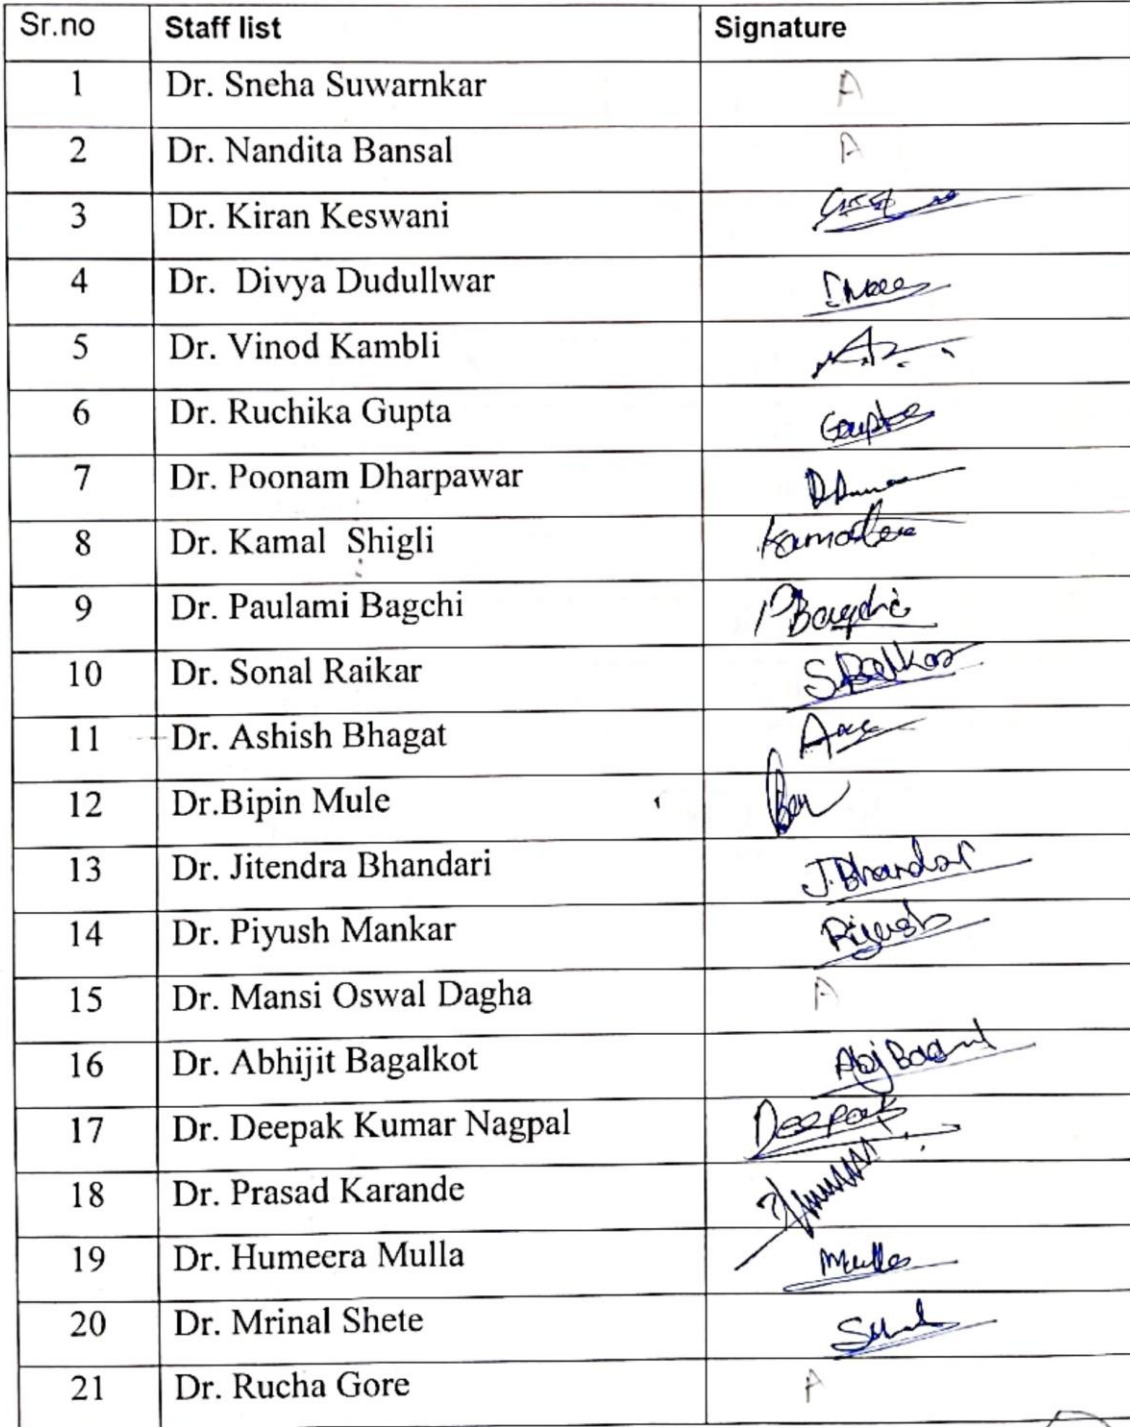 Sr.no Staff list Signature
1 Dr. Sneha Suwarnkar A
2 Dr. Nandita Bansal A
3 Dr. Kiran Keswani
4 Dr. Divya Dudullwar
5 Dr. Vinod Kambli
6 Dr. Ruchika Gupta Gupta
7 Dr. Poonam Dharpawar
8 Dr. Kamal Shigli
9 Dr. Paulami Bagchi PBagchi
10 Dr. Sonal Raikar SRaikar
11 Dr. Ashish Bhagat
12 Dr.Bipin Mule
13 Dr. Jitendra Bhandari J.Bhandari
14 Dr. Piyush Mankar Piyush
15 Dr. Mansi Oswal Dagha A
16 Dr. Abhijit Bagalkot
17 Dr. Deepak Kumar Nagpal Deepak
18 Dr. Prasad Karande
19 Dr. Humeera Mulla Mulla
20 Dr. Mrinal Shete
21 Dr. Rucha Gore A